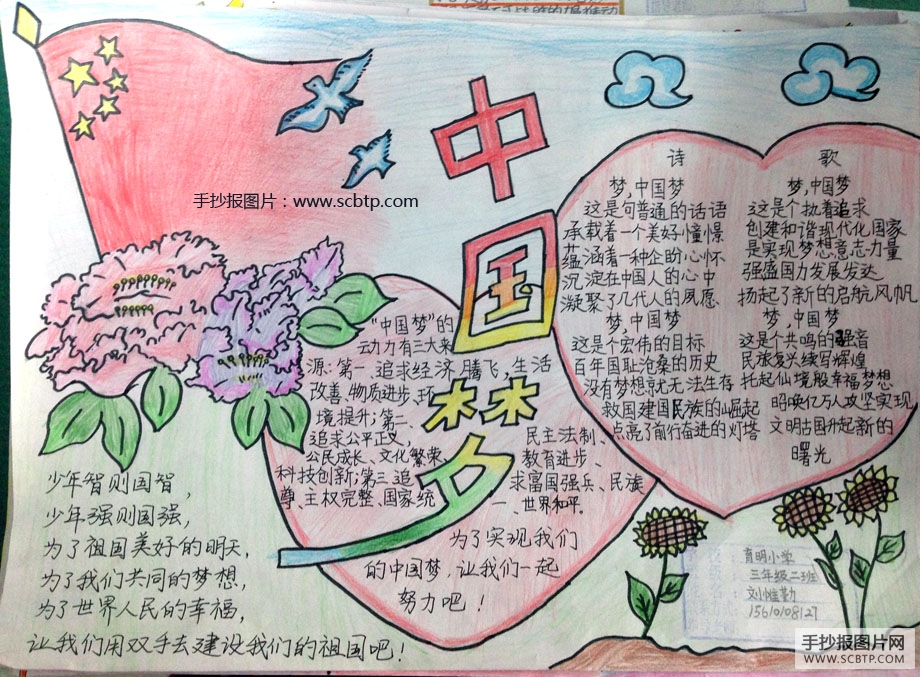 手抄报图片：www.scbtp.com
中
国
梦
诗 歌
梦,中国梦
这是句普通的话语
承载着一个美好憧憬
蕴涵着一种企盼心怀
沉淀在中国人的心中
凝聚了几代人的夙愿
梦,中国梦
这是个宏伟的目标
百年国耻沧桑的历史
没有梦想就无法生存
救国建国民族的崛起
点亮了前行奋进的灯塔
梦,中国梦
这是个执着追求
创建和谐现代化国家
是实现梦想意志力量
强盛国力发展发达
扬起了新的启航风帆
梦,中国梦
这是个共鸣的强音
民族复兴续写辉煌
托起仙境般幸福梦想
昭唤亿万人攻坚实现
文明古国升起新的
曙光
“中国梦”的
动力有三大来
源：第一 追求经济腾飞,生活
改善、物质进步、环
境提升；第二
追求公平正义，
公民成长、文化繁荣、
科技创新；第三 追
尊、主权完整、国家统
民主法制、
教育进步、
求富国强兵、民族
一、世界和平.
为了实现我们
的中国梦,让我们一起
努力吧！
少年智则国智，
少年强则国强，
为了祖国美好的明天，
为了我们共同的梦想，
为了世界人民的幸福，
让我们用双手去建设我们的祖国吧！
育明小学
三年级二班
15610108127
手抄报图片网
WWW.SCBTP.COM